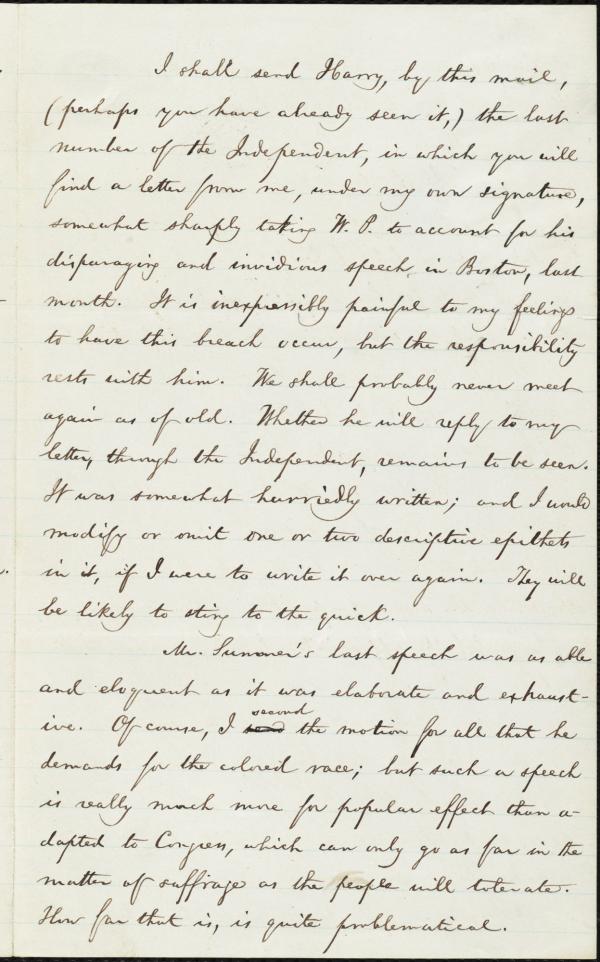 I shall send Harry, by this mail,
(perhaps you have already seen it,) the last
number of the Independent, in which you will
find a letter from me, under my own signature,
somewhat sharply taking W. P. to account for his
disparaging and invidious speech in Boston, last
month. It is inexpressibly painful to my feelings
to have this breach occur, but the responsibility
rests with him. We shall probably never meet
again as of old. Whether he will reply to my
letter, through the Independent, remains to be seen.
It was somewhat hurriedly written; and I would
modify or omit one or two descriptive epithets
in it, if I were to write it over again. They will
be likely to sting to the quick.
Mr. Sumner's last speech was as able
and eloquent as it was elaborate and exhaust-
ive. Of course, I second the motion for all that he
demands for the colored race; but such a speech
is really much more for popular effect than a-
dapted to Congress, which can only go as far in the
matter of suffrage as the people will tolerate.
How far that is, is quite problematical.